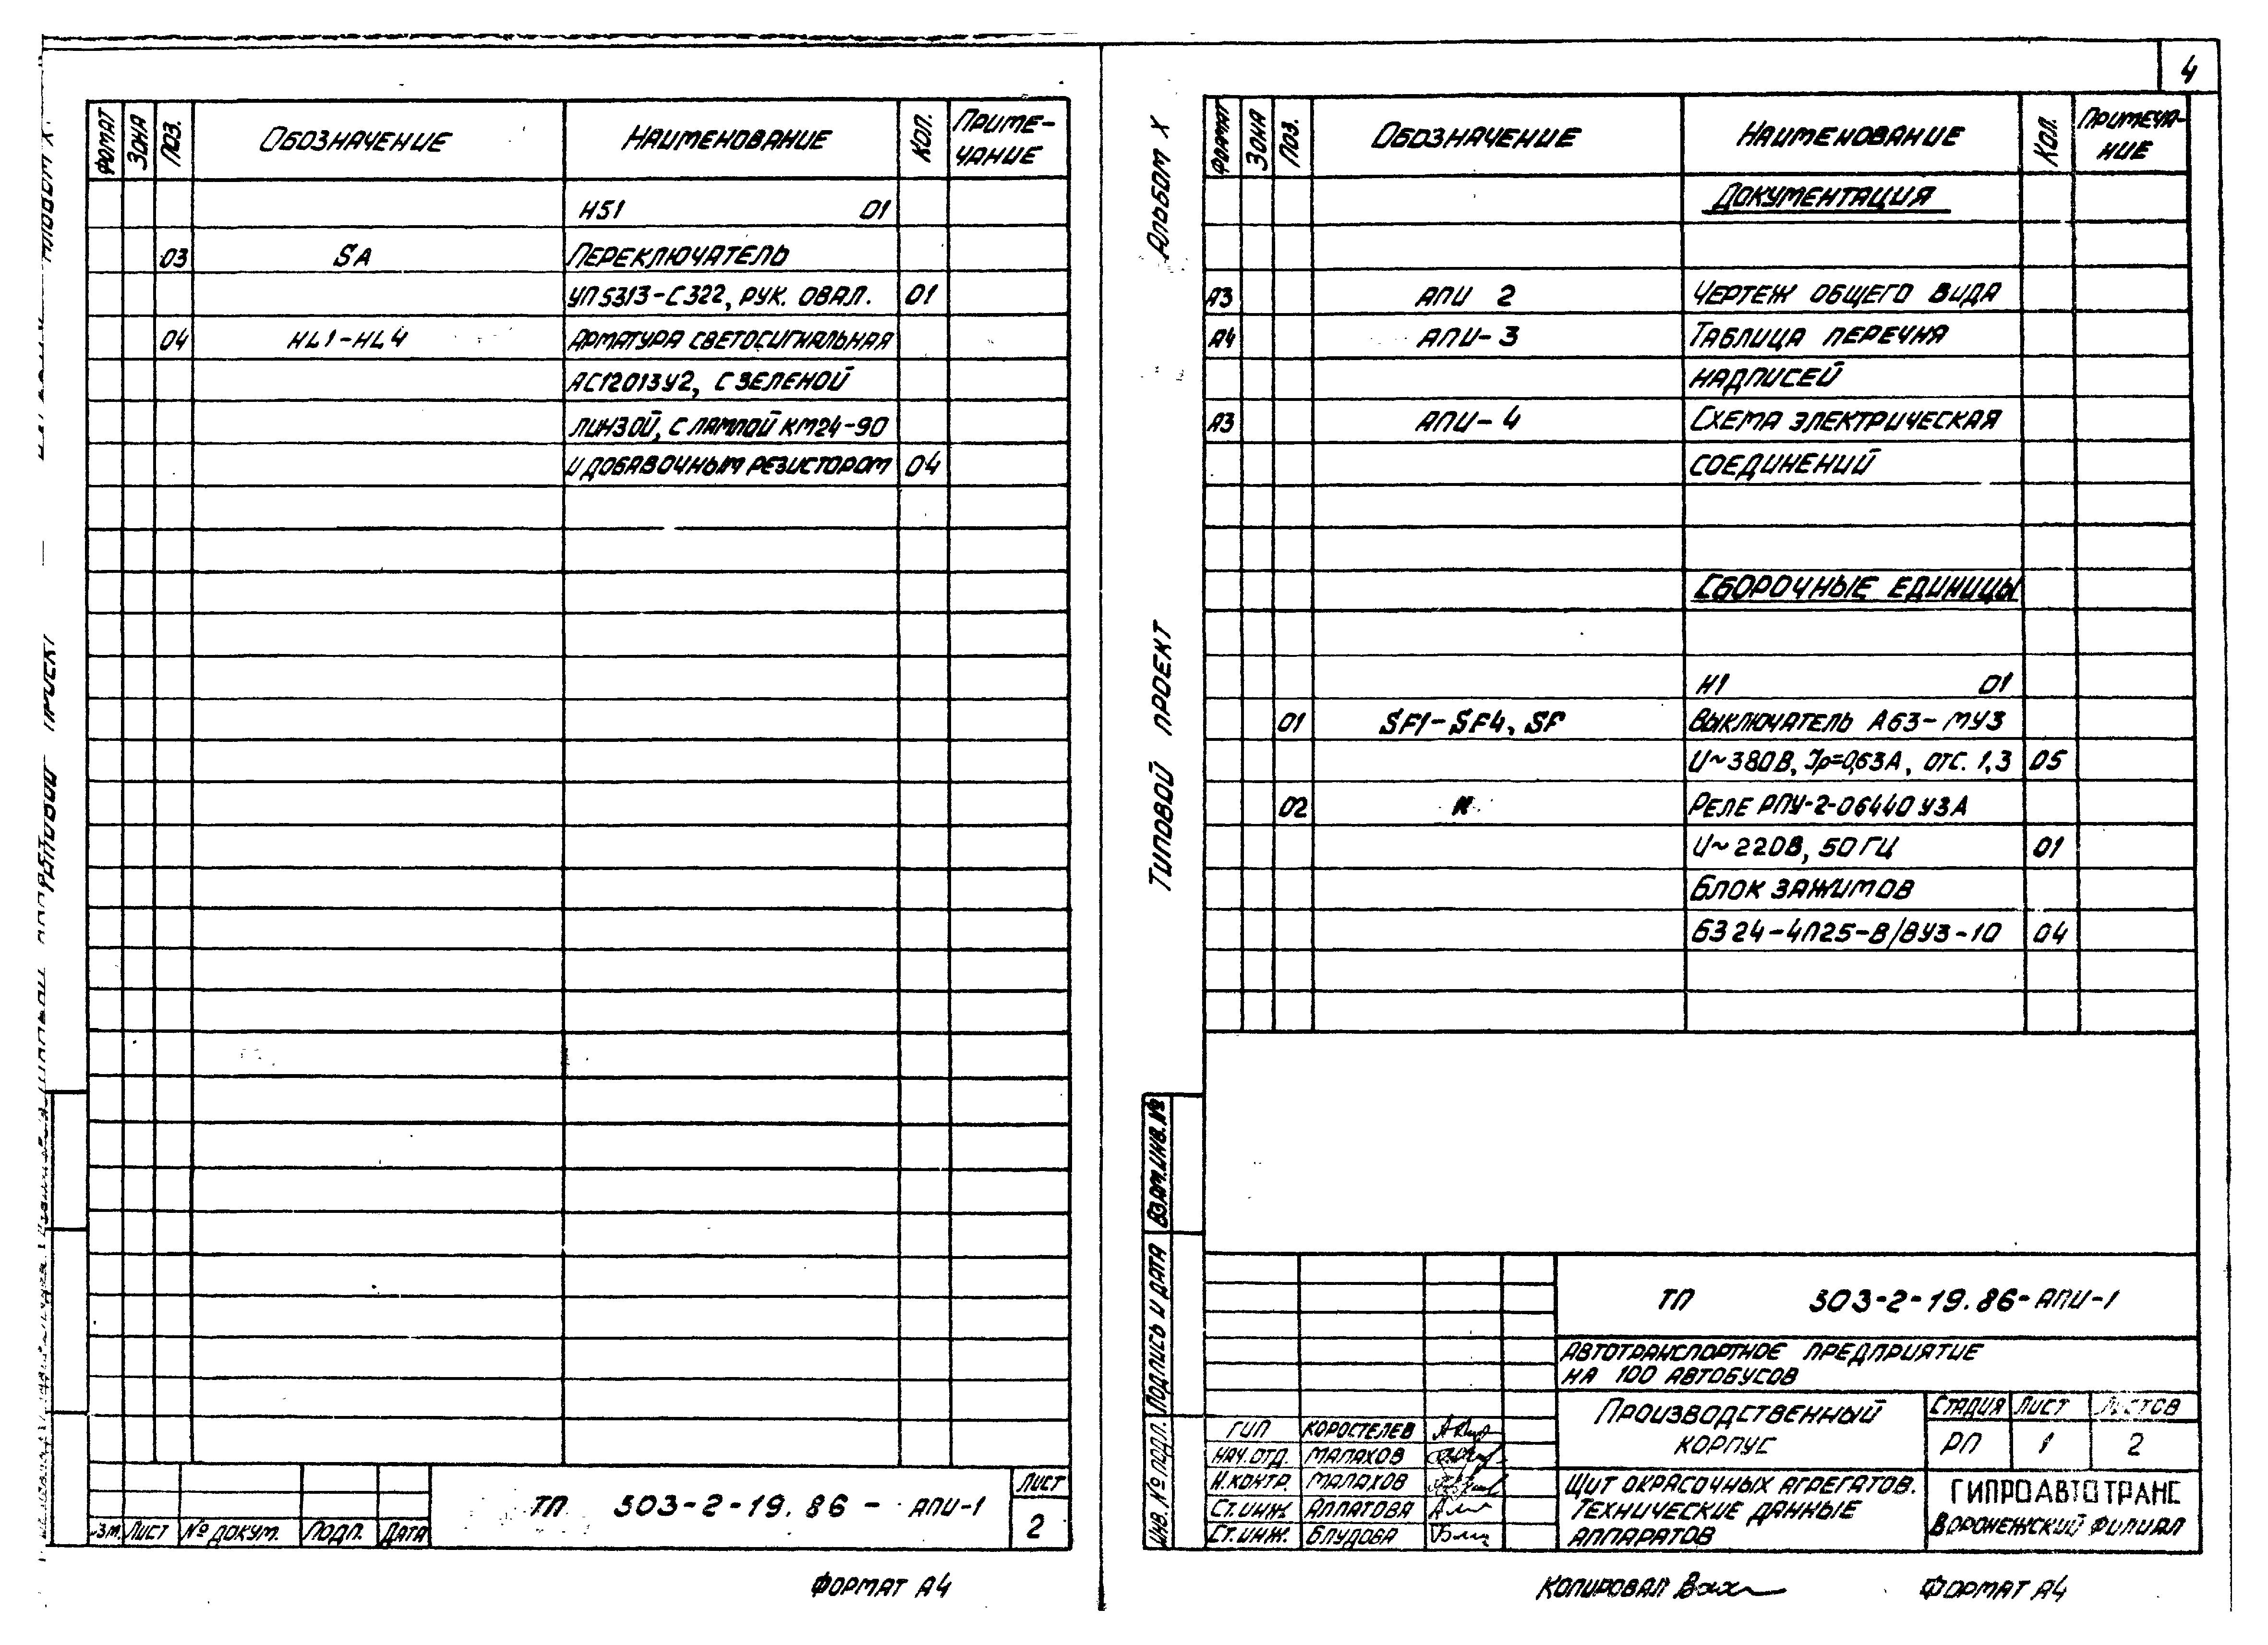 ФОРМАТ ЗОНА ПОЗ. ОБОЗНАЧЕНИЕ НАИМЕНОВАНИЕ КОЛ. ПРИМЕ-
ЧАНИЕ
Н51 01
03 SA ПЕРЕКЛЮЧАТЕЛЬ
УП5313-С322, РУК. ОВАЛ. 01
04 HL1-HL4 АРМАТУРА СВЕТОСИГНАЛЬНАЯ
АС12013У2, С ЗЕЛЕНОЙ
ЛИНЗОЙ, С ЛАМПОЙ КМ24-90
И ДОБАВОЧНЫМ РЕЗИСТОРОМ 04
ЛИСТ № ДОКУМ. ПОДП. ДАТА
ТП 303-2-19.86- АПИ-1
ЛИСТ
2
ФОРМАТ А4
4
АЛЬБОМ X
ТИПОВОЙ ПРОЕКТ
ФОРМАТ ЗОНА ПОЗ. ОБОЗНАЧЕНИЕ НАИМЕНОВАНИЕ КОЛ. ПРИМЕЧА-
НИЕ
ДОКУМЕНТАЦИЯ
А3 АПИ 2 ЧЕРТЕЖ ОБЩЕГО ВИДА
А4 АПИ-3 ТАБЛИЦА ПЕРЕЧНЯ
НАДПИСЕЙ
А3 АПИ-4 СХЕМА ЭЛЕКТРИЧЕСКАЯ
СОЕДИНЕНИЙ
СБОРОЧНЫЕ ЕДИНИЦЫ
Н1 01
01 SF1-SF4, SF ВЫКЛЮЧАТЕЛЬ А63-МУ3
U~380В, Iр=0,63А, ОТС. 1,3 05
02 К РЕЛЕ РПУ-2-06440У3А
U~220В, 50ГЦ 01
БЛОК ЗАЖИМОВ
БЗ24-4П25-В/ВУ3-10 04
ВЗАМ.ИНВ.№
ПОДПИСЬ И ДАТА
ИНВ.№ ПОДЛ.
ТП 303-2-19.86-АПИ-1
АВТОТРАНСПОРТНОЕ ПРЕДПРИЯТИЕ
НА 100 АВТОБУСОВ
ПРОИЗВОДСТВЕННЫЙ
КОРПУС
СТАДИЯ ЛИСТ ЛИСТОВ
РП 1 2
ГИП КОРОСТЕЛЕВ
НАЧ.ОТД. МАЛАХОВ
Н.КОНТР. МАЛАХОВ
СТ.ИНЖ. АЛПАТОВА
СТ.ИНЖ. БЛУДОВА
ЩИТ ОКРАСОЧНЫХ АГРЕГАТОВ.
ТЕХНИЧЕСКИЕ ДАННЫЕ
АППАРАТОВ
ГИПРОАВТОТРАНС
ВОРОНЕЖСКИЙ ФИЛИАЛ
КОПИРОВАЛ
ФОРМАТ А4